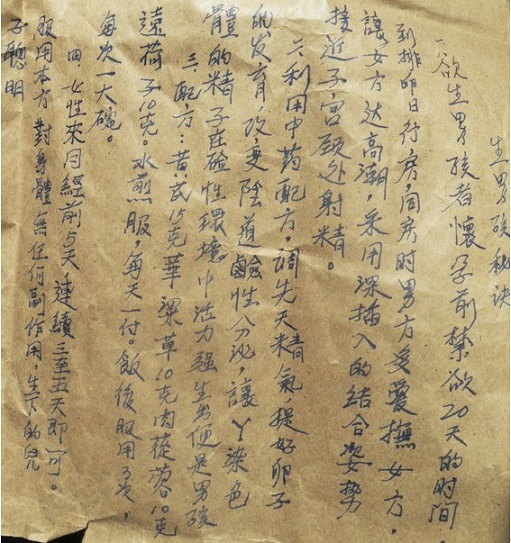 生男孩秘诀
一欲生男孩者懷孕前禁欲20天的时间，
到排卵日行房，同房时男方多愛撫女方，
讓女方达高潮，采用深插入的结合姿势
接近子宫颈处射精。
二利用中药配方，调先天精氣，提好卵子
的发育，改变陰道鹼性分泌，讓丫染色
體的精子在硷性環境中活力强生出便是男孩
三配方：黄芪15克華 草10克肉蓯蓉10克
遠荷子10克。水煎服，每天一付。飯後服用3次，
每次一大碗。
四女性來月經前5天連續三至五天即可。
服用本方對身體無任何副作用，生下的兒
子聰明